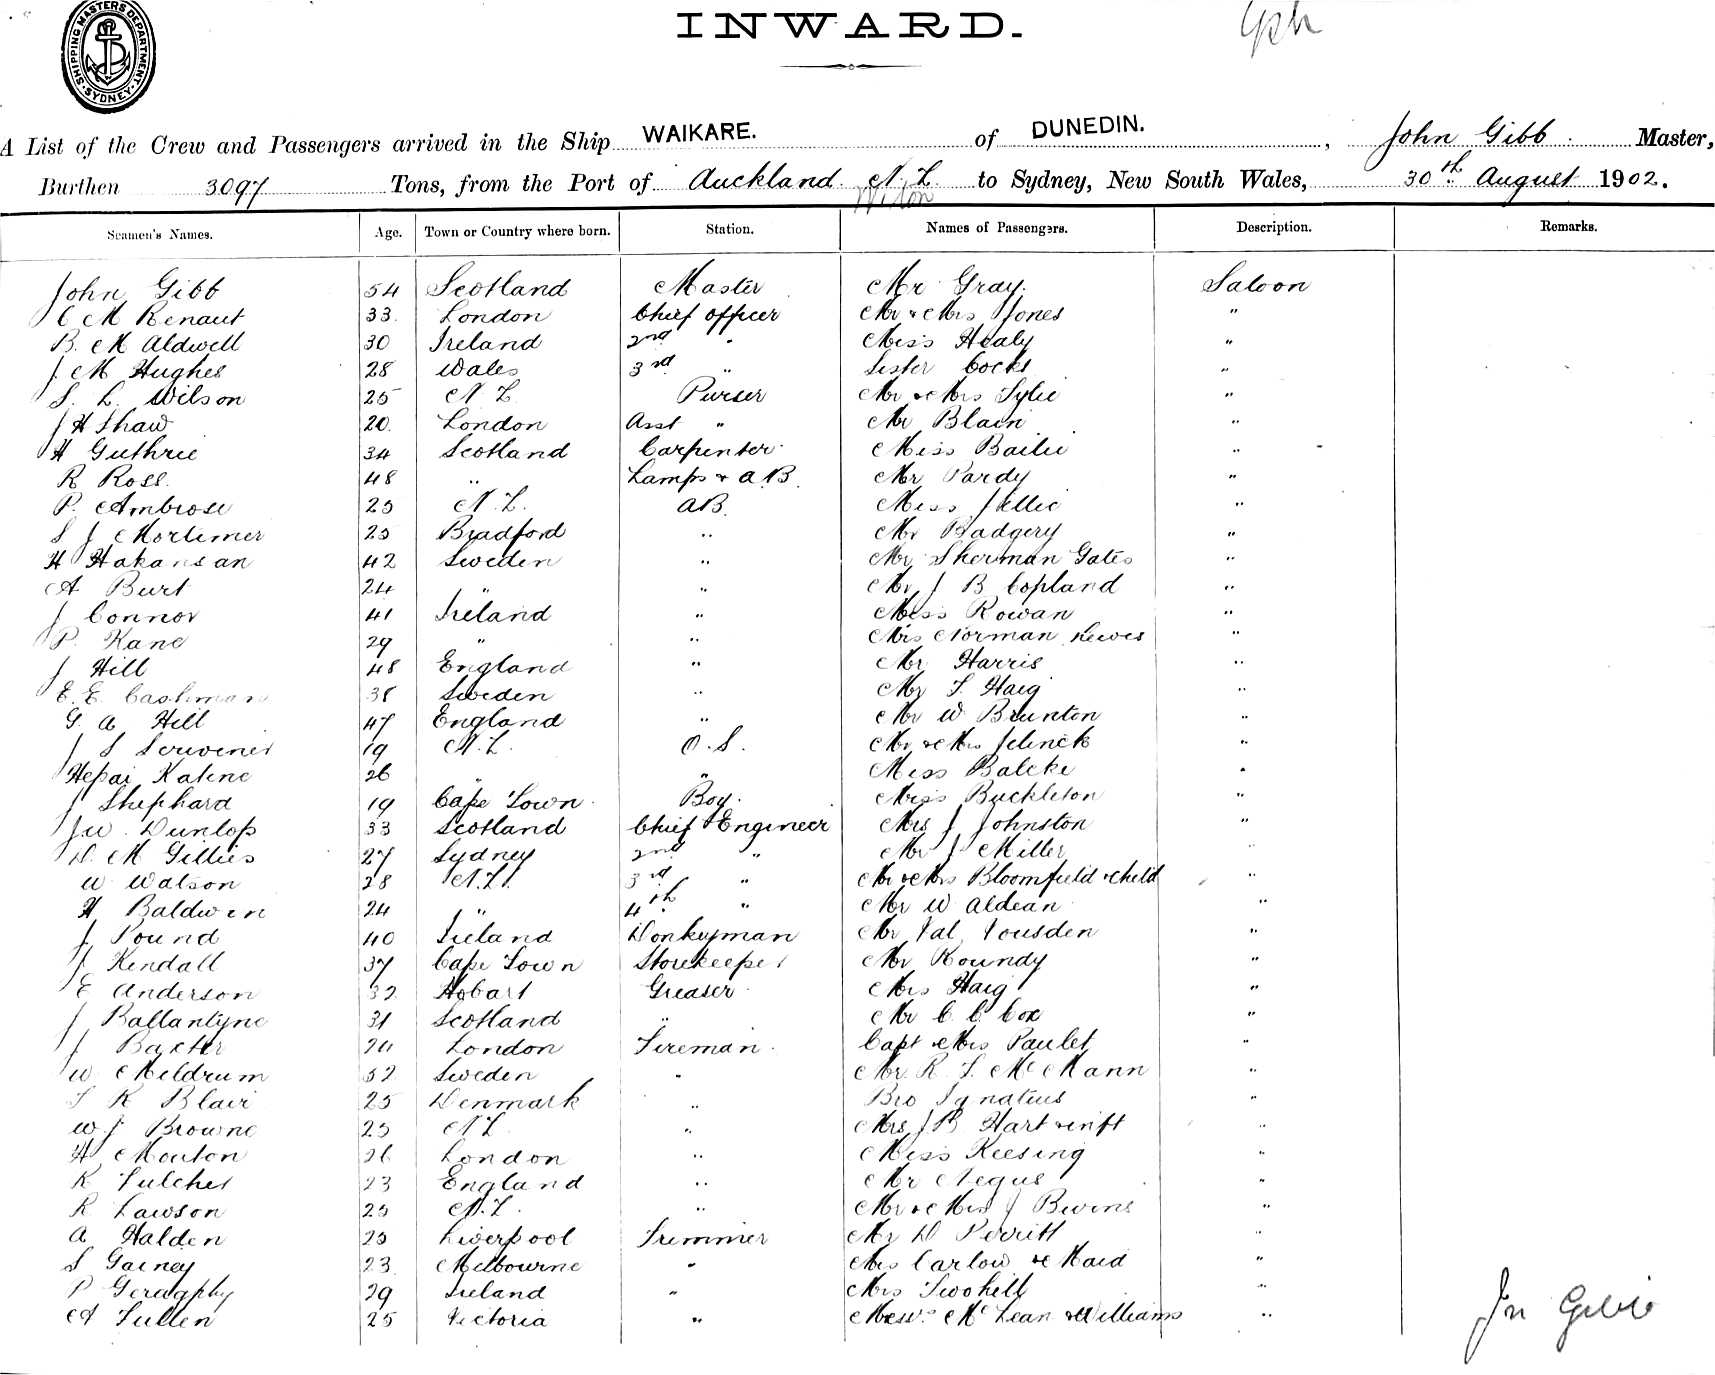 SHIPPING MASTERS DEPARTMENT. SYDNEY.
INWARD.
A List of the Crew and Passengers arrived in the Ship WAIKARE. of DUNEDIN. , John Gibb. Master,
Burthen 3097 Tons, from the Port of Auckland N.Z to Sydney, New South Wales, 30th August 1902.
Seamen's Names. Age. Town or Country where born. Station. Names of Passengers. Description. Remarks.
John Gibb 54 Scotland Master Mr Gray. Saloon
C M Renaut 33. London Chief officer Mr & Mrs Jones "
B. M Aldwell 30 Ireland 2nd " Miss Healy "
J. M Hughes 28 Wales 3rd " Sister Cocks "
S. L. Wilson 25 N.Z. Purser Mr & Mrs Tylie "
J H Shaw 20. London Asst " Mr Blain "
H Guthrie 34 Scotland Carpenter Miss Bailie "
R Ross. 48 " Lamps & A.B. Mr Pardy "
P. Ambrose 25 N.Z. AB. Miss Jellie "
S J Mortimer 25 Bradford " Mr Badgery "
H Hakansan 42 Sweden " Mr Sherman Gates "
A Burt 24 " " Mr J B Copland "
J Connor 41 Ireland " Miss Rowan "
P. Kane 29 " " Mrs Norman Lewes "
J Hill 48 England " Mr Harris "
E. E. Cashman 38 Sweden " Mr T. Haig "
G. A Hill 47 England " Mr W Brunton "
J S Scrivener 19 N.Z. O.S. Mr & Mrs "
Hepai Katene 26 " " Miss Balcke "
J Shephard 19 Cape Town. Boy. Miss Buckleton "
J W. Dunlop 33 Scotland Chief Engineer Mrs J Johnston "
D. M Gillies 27 Sydney 2nd " Mr J Miller "
W Watson 28 N.Z. 3rd " Mr & Mrs Bloomfield & child "
H Baldwin 24 " 4th " Mr W Aldean "
J Pound 40 Ireland Donkeyman Mr Val Vousden "
J Kendall 37 Cape Town Storekeeper Mr Roundy "
E Anderson 32 Hobart Greaser Mrs Haig "
J Ballantyne 31 Scotland " Mr C. C Cox "
J Baxter 24 London Fireman. Capt & Mrs Paulet "
W Meldrum 52 Sweden " Mr. R. T. McMann "
T K Blair 25 Denmark " Bro Ignatius "
W J Browne 25 N.Z. " Mrs J B Hart & inft "
H Mouton 26 London " Miss Keesing "
R Fulcher 23 England " Mr Negus "
R Lawson 25 N.Z. " Mr & Mrs J Bivens "
A Halden 25 Liverpool Trimmer Mr D Perritt "
S Gainey 23 Melbourne " Mrs Carlow & Maid "
P Geraghty 29 Ireland " Mrs Twohill "
A Fullen 25 Victoria " Messrs McLean & Williams "
Jn Gibb